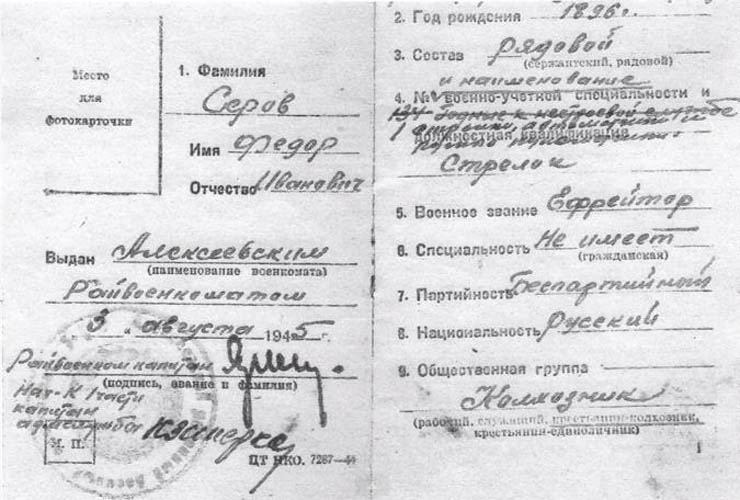 Место
для
фотокарточки
1. Фамилия
Серов
Имя Федор
Отчество Иванович
Выдан Алексеевским
(наименование военкомата)
Райвоенкоматом
3 " августа 1945 г.
Райвоенком капитан
(подпись, звание и фамилия)
Нач-к 1 части
капитан
адм.службы
М. П.
ЦТ НКО. 7287—44
2. Год рождения 1896 г.
3. Состав рядовой
(сержантский, рядовой)
и наименование
4. № военно-учетной специальности и
должностная квалификация
Стрелок
5. Военное звание Ефрейтор
6. Специальность Не имеет
(гражданская)
7. Партийность Беспартийный
8. Национальность Русский
9. Общественная группа
Колхозник
(рабочий, служащий, крестьянин-колхозник,
крестьянин-единоличник)
1